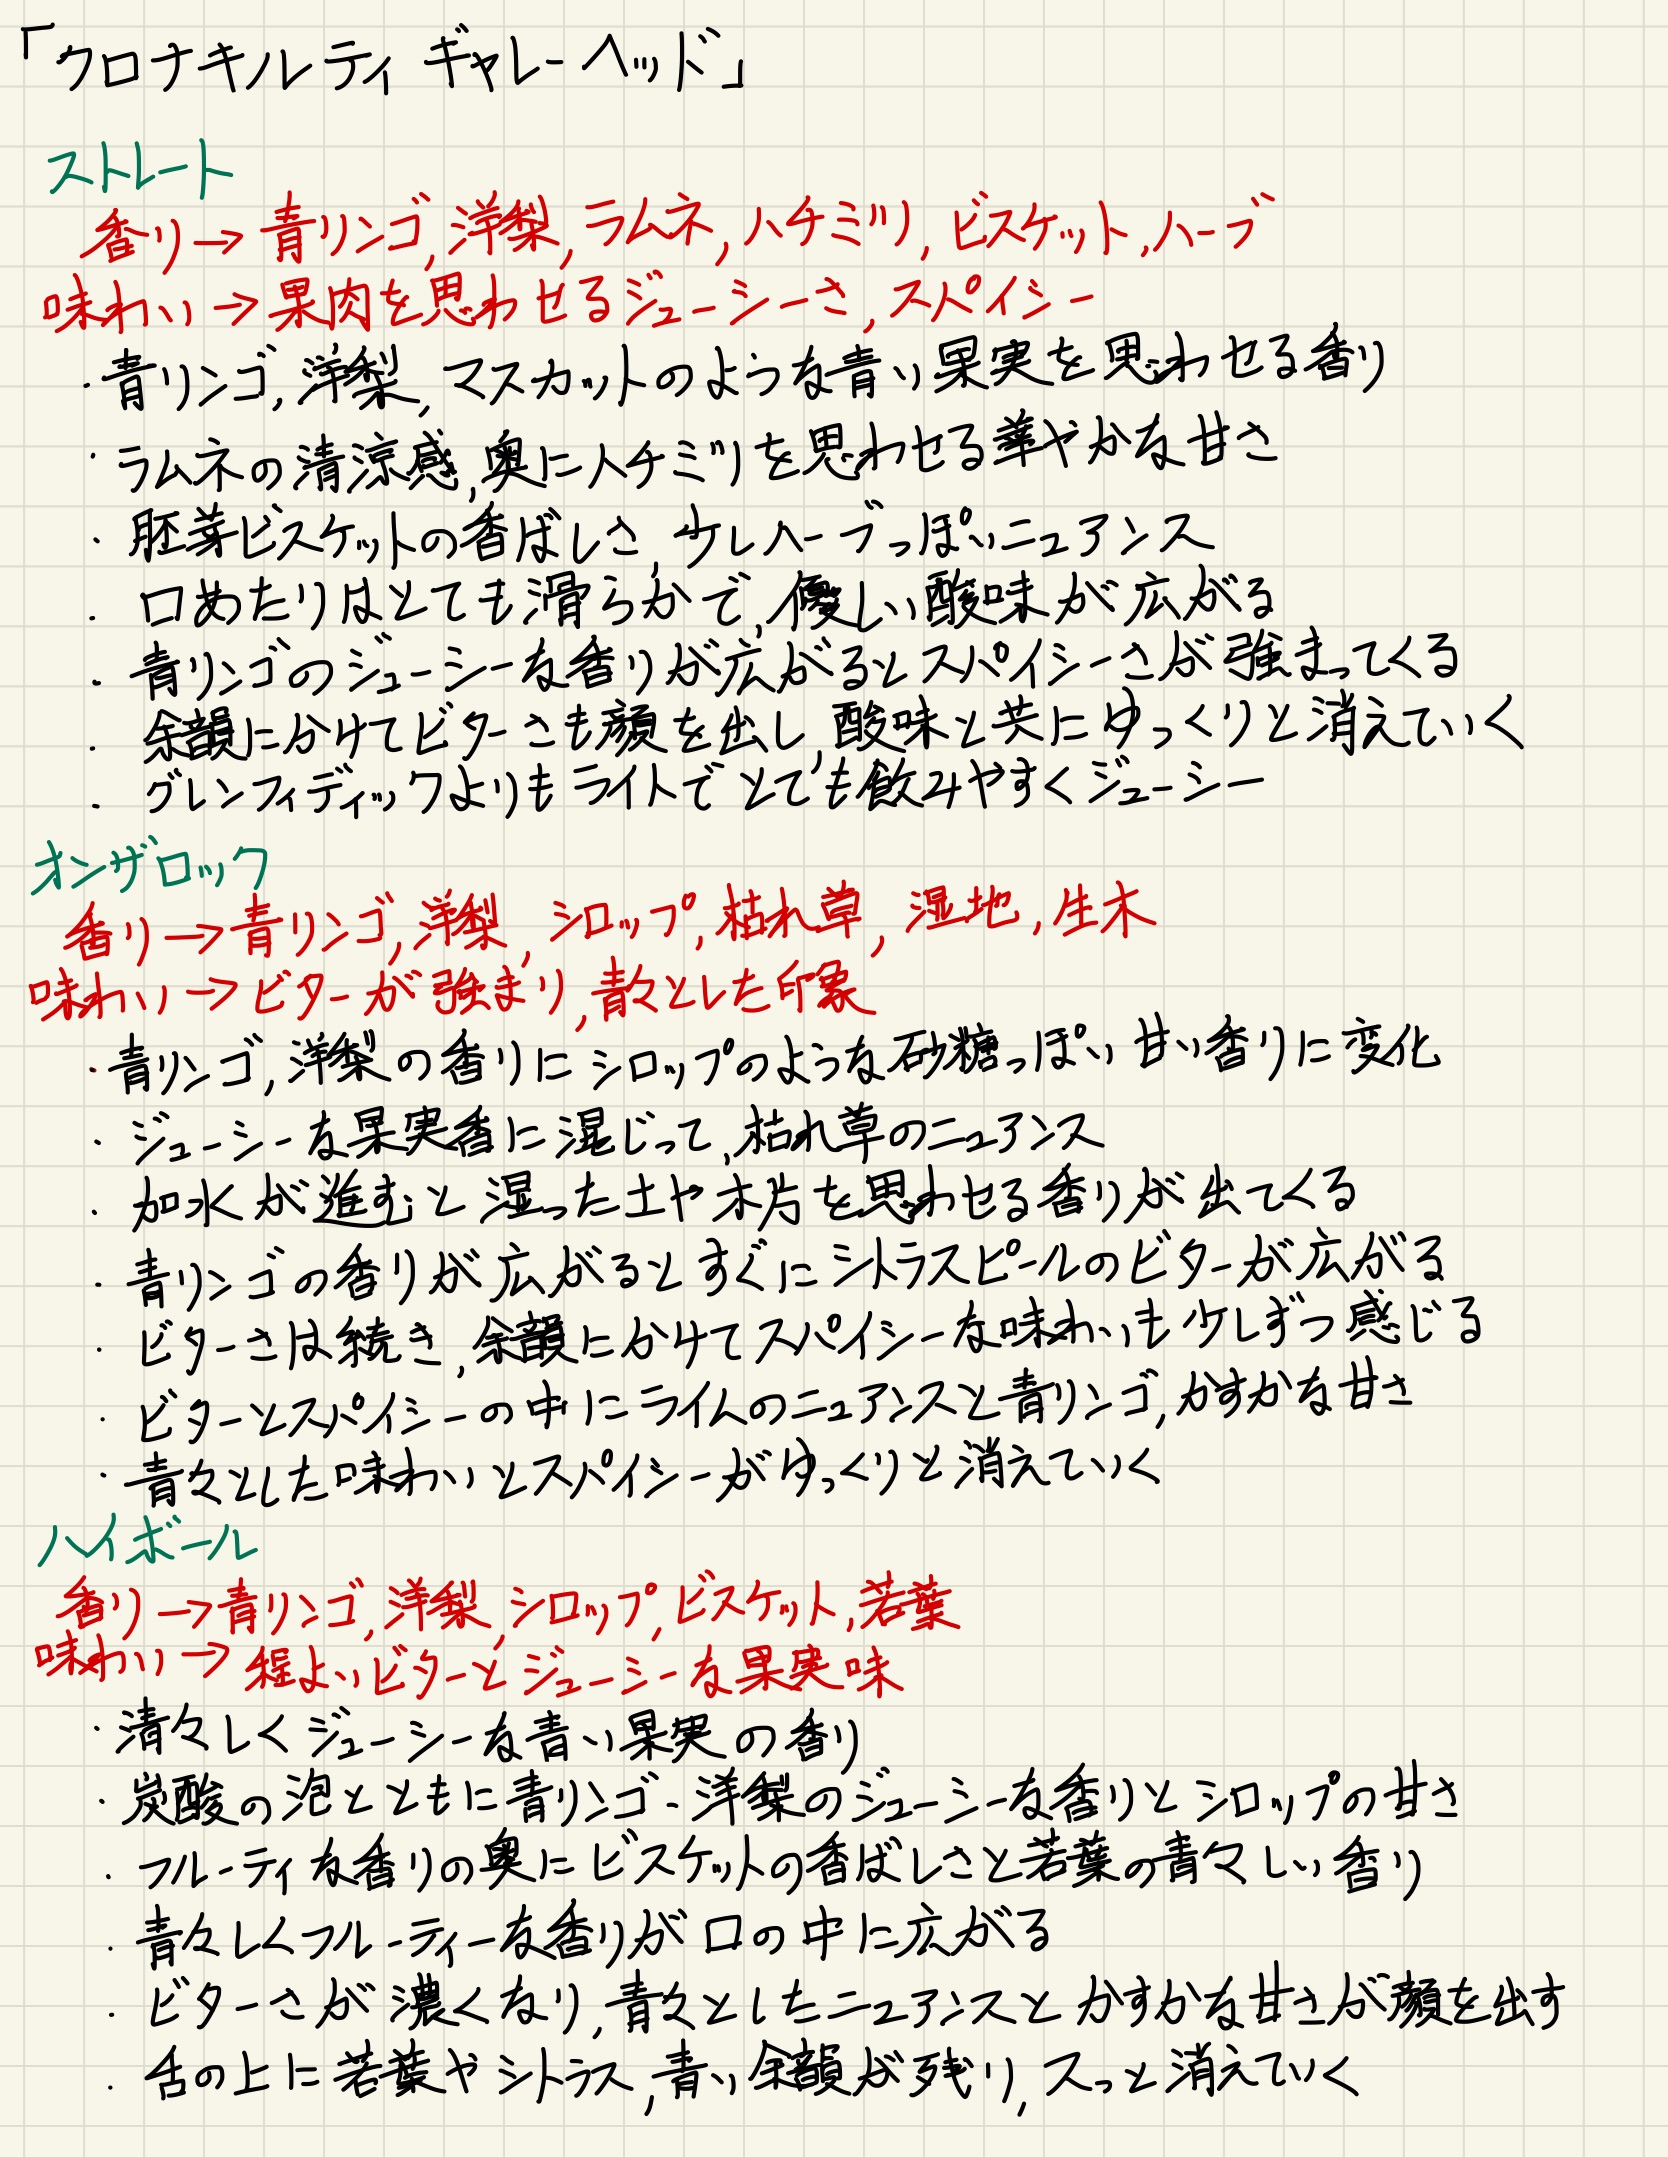 「クロナキルティ ギャレーヘッド」
ストレート
香り→青リンゴ,洋梨,ラムネ,ハチミツ,ビスケット,ハーブ
味わい→果肉を思わせるジューシーさ,スパイシー
・青リンゴ,洋梨,マスカットのような青い果実を思わせる香り
・ラムネの清涼感,奥にハチミツを思わせる華やかな甘さ
・胚芽ビスケットの香ばしさ,少しハーブっぽいニュアンス
・口あたりはとても滑らかで,優しい酸味が広がる
・青リンゴのジューシーな香りが広がるとスパイシーさが強まってくる
・余韻にかけてビターさも顔を出し,酸味と共にゆっくりと消えていく
・グレンフィディックよりもライトでとても飲みやすくジューシー
オンザロック
香り→青リンゴ,洋梨,シロップ,枯れ草,湿地,生木
味わい→ビターが強まり,青々とした印象
・青リンゴ,洋梨の香りにシロップのような砂糖っぽい甘い香りに変化
・ジューシーな果実香に混じって,枯れ草のニュアンス
・加水が進むと湿った土や木片を思わせる香りが出てくる
・青リンゴの香りが広がるとすぐにシトラスピールのビターが広がる
・ビターさは続き,余韻にかけてスパイシーな味わいも少しずつ感じる
・ビターとスパイシーの中にライムのニュアンスと青リンゴ,かすかな甘さ
・青々とした味わいとスパイシーがゆっくりと消えていく
ハイボール
香り→青リンゴ,洋梨,シロップ,ビスケット,若葉
味わい→程よいビターとジューシーな果実味
・清々しくジューシーな青い果実の香り
・炭酸の泡とともに青リンゴ、洋梨のジューシーな香りとシロップの甘さ
・フルーティな香りの奥にビスケットの香ばしさと若葉の青々しい香り
・青々しくフルーティーな香りが口の中に広がる
・ビターさが濃くなり,青々としたニュアンスとかすかな甘さが顔を出す
・舌の上に若葉やシトラス,青い余韻が残り,スっと消えていく